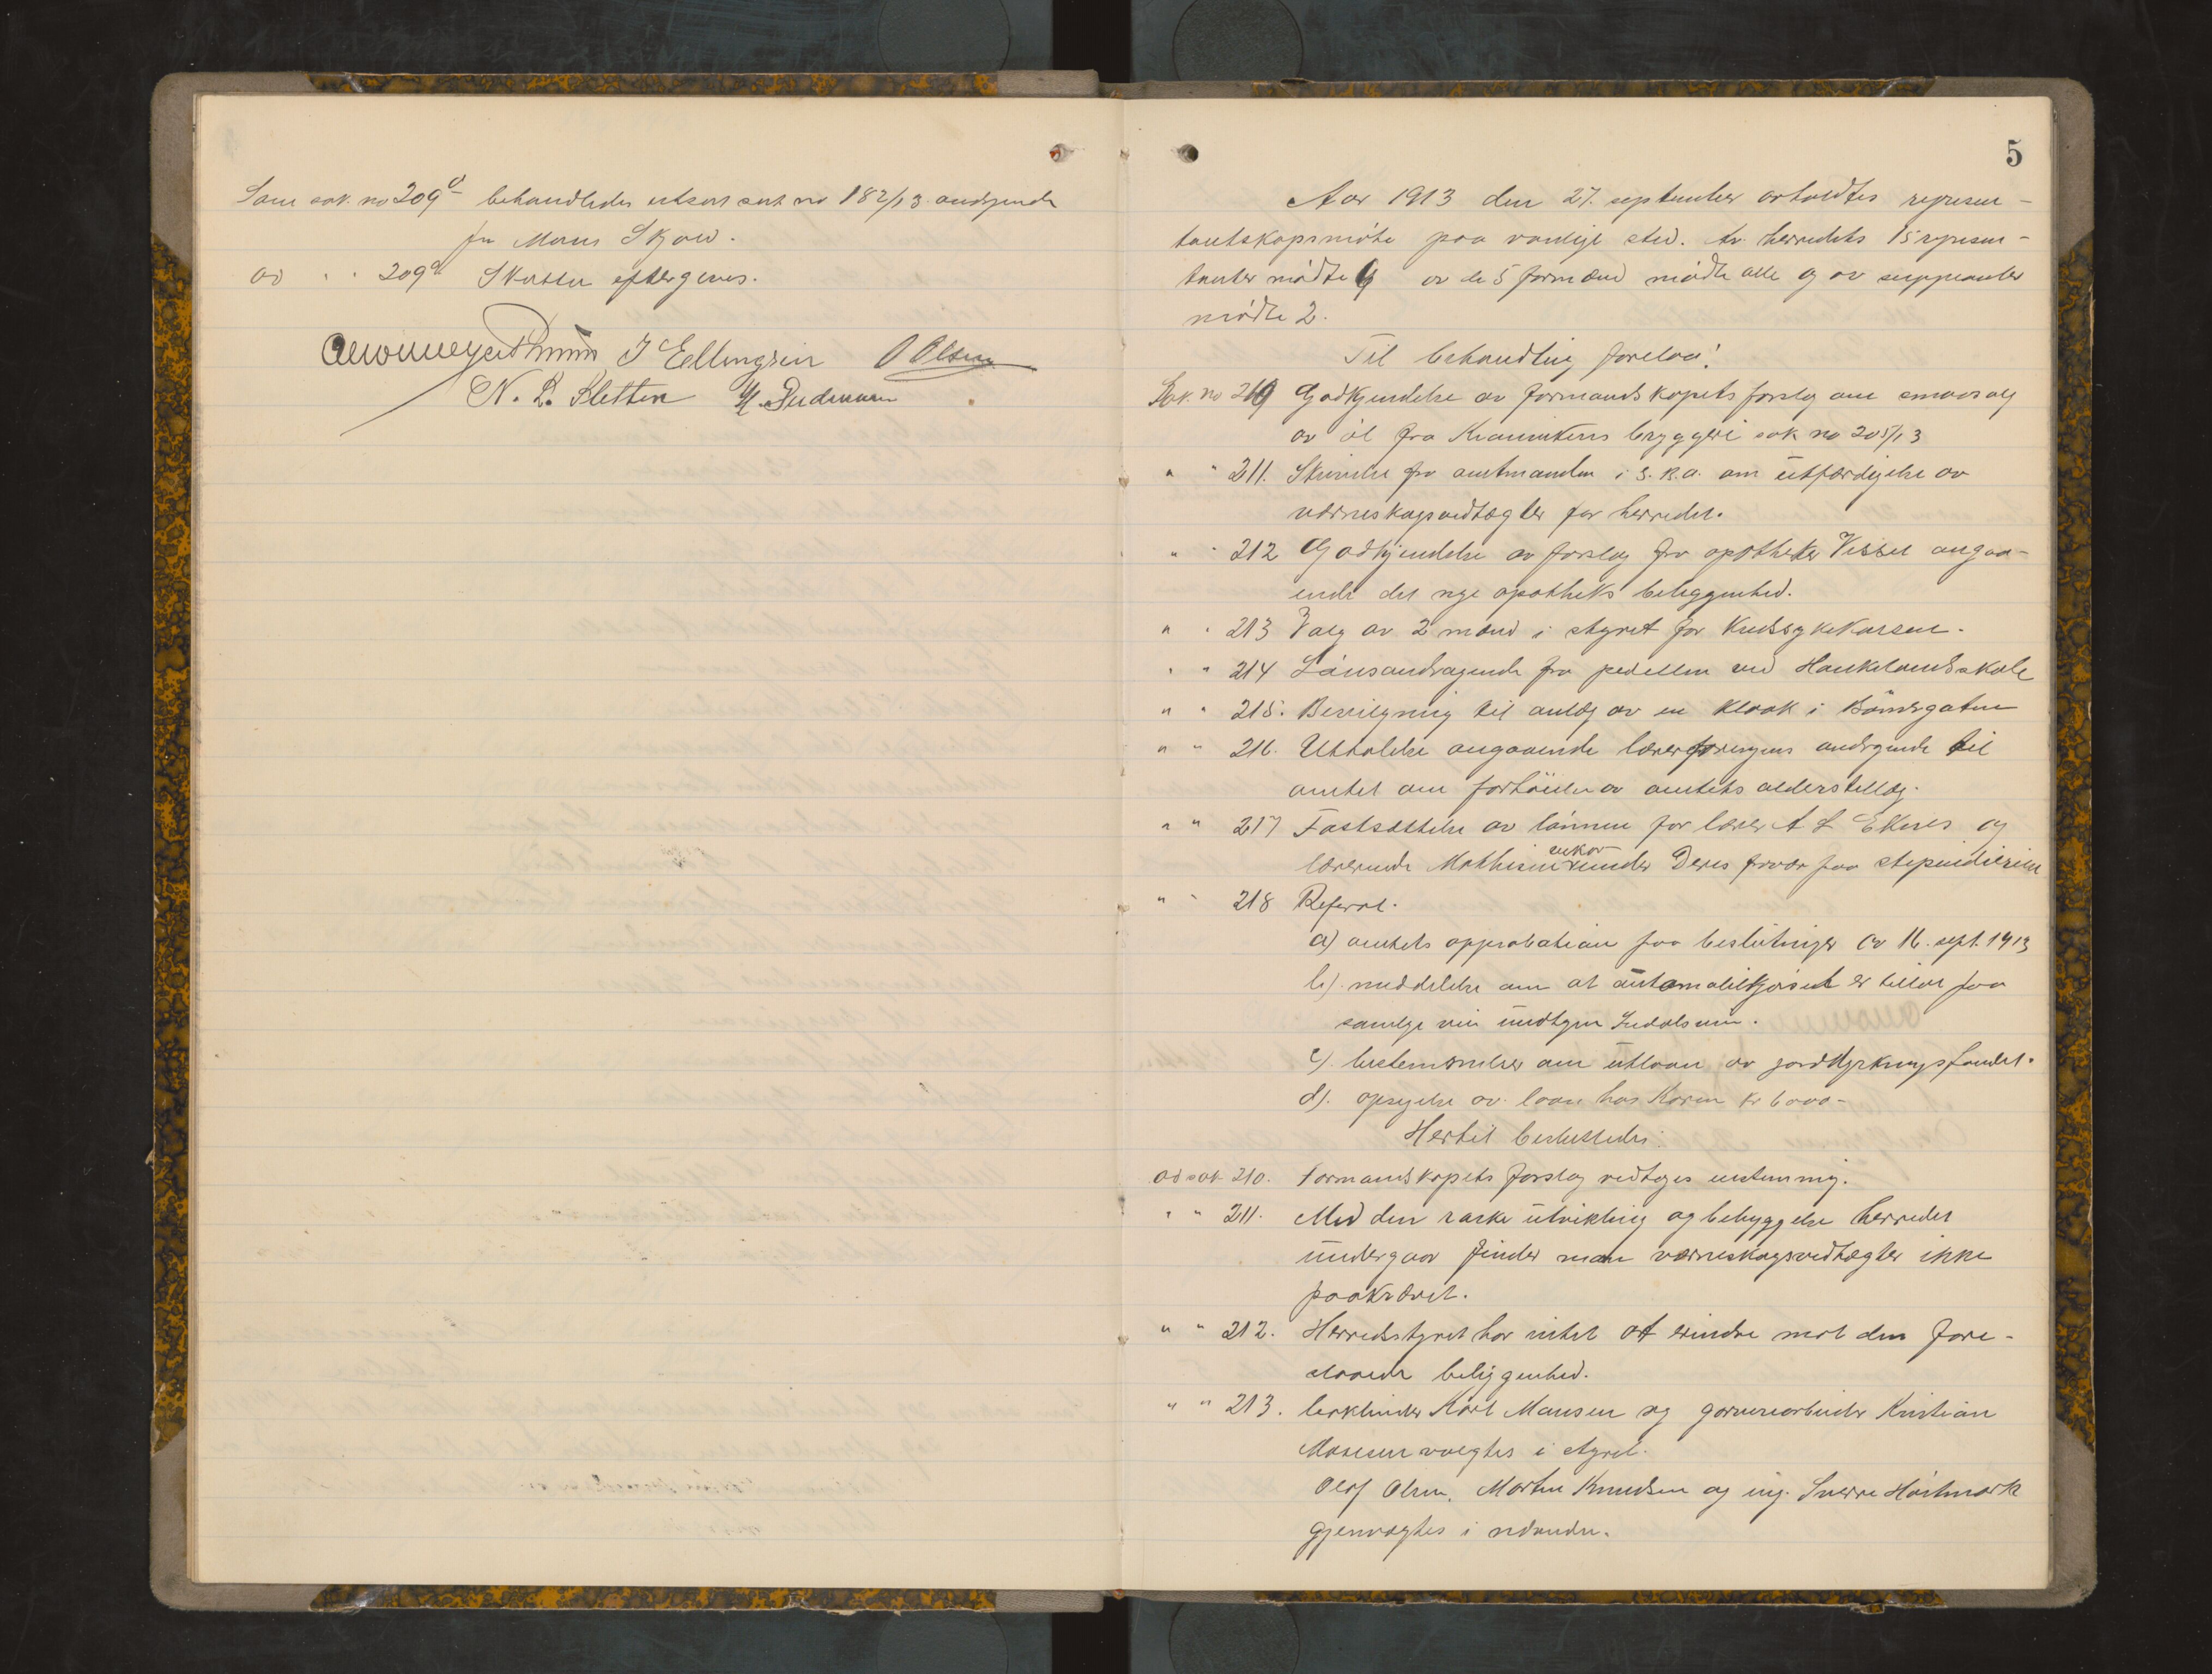 Som sak no 209d behandledes utsat sak no 182/13 andragende
fra Mons Skjold.
ad " " 209d Skatten eftergives.
J Ellingsen O Olsen
N. L. Kletten
5
Aar 1913 den 27. september avholdtes represen-
tantskapsmøte paa vanlige sted. Av herredets 15 represen-
tanter mødte 9 av de 5 formænd mødte alle og av suppleanter
mødte 2.
Til behandling forelaa:
Sak no 210 Godkjendelse av formandskapets forslag om smaasalg
av øl fra bryggeri sak no 205/13
" " 211. Skrivelse fra amtmanden i S. B. a. om utfærdigelse av
værneskogsvedtægter for herredet.
" " 212 Godkjendelse av forslag fra apotheker angaa-
ende det nye apotheks beliggenhed.
" " 213 Valg av 2 mænd i styret for kredssykekassen.
" " 214 Lønsandragende fra pedellen ved Haukelandsskole
" " 215. Bevilgning til anlæg av en kloak i Bönesgaten
" " 216. Uttalelse angaaende lærerforeningens andragende til
amtet om forhöielse av amtets alderstillæg.
" " 217 Fastsættelse av lönnen for lærer A L Ekenes og
lærerinde Mathisens vikar under Deres fravær paa stipendiereise
" " 218 Referat.
a) amtets approbation paa beslutninger av 16. sept. 1913
b). meddelelse om at automobilkjørsel er tillat paa
samlge veie undtagen
c). bestemmelser om utlaan av jorddyrkningsfondet.
d). opsigelse av laan hos Koren kr 6000-
Hertil besluttedes:
ad sak 210. Formandskapets forslag vedtages enstemmig.
" " 211. Med den raske utvikling og bebyggelse herredet
undergaar finder man værneskogsvedtægter ikke
paakrævet.
" " 212. Herredsstyret har intet at erindre mot den fore-
slaaede beliggenhed.
" " 213. Karl Mansen og garveriarbeider Kristian
Monsen valgtes i styret.
Olaf Olsen, Martin Knudsen og ing. Sverre Hartmark
gjenvalgtes i nævnden.